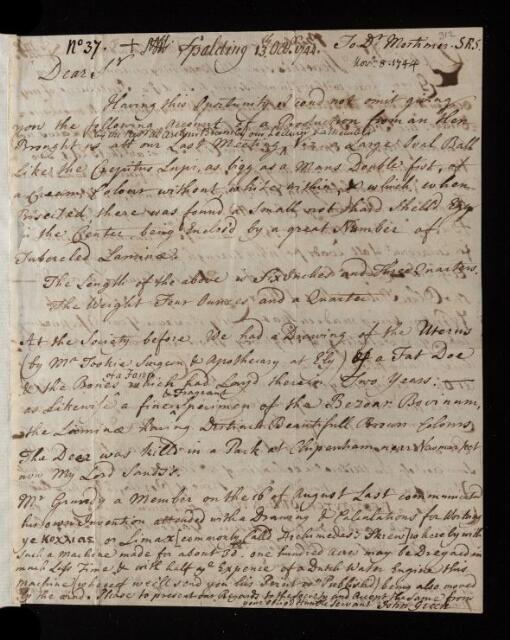 No 37. + Spalding 13 Octr. 1744. To Dr Mortimer. S.R.S. 312
Novr. 8. 1744
Dear Sr
Having this Oportunity I coud not omit giving
you the following Account of a Production from an Hen
Brought us att our Last Meeting, a Large Oval Ball
Like the Crepitus Lupi, as bigg as a Mans Double fist, of
a Cream Colour without, white within, & which when
Bisected, there was found a Small not hard Shelld Egg
in the Center being Enclosed by a great Number of
Tubercled Laminæ.
The Length of the above is Six Inches and Three Quarters.
The Weight Four Ounces and a Quarter
At the Society before. We had a Drawing of the Uterus
(by Mr Tookie Surgeon & Apothecary at Ely) of a Fat Doe
of a Fawn
& the Bones which had Layd therein Two Years.
& Fragrant
as Likewise a fine Specimen of the Bezoar Bovinum,
the Laminæ having Distinct Beautifull Brown Colours
The Deer was killd in a Park at Chipenham near Newmarket
now My Lord Sands's.
Mr Grundy a Member on the 16 of August Last communicated
his own Invention attended with a Drawing & Calculations for Working
ye ΚΟΧΛΙΑΣ or Limax [commonly Calld Archimedes's Skrew] whereby with
Such a Machine made for about one hundred Acres may be Dreyned in
much Less Time & with half ye Expence of a Dutch Water Engine this
machine [whereof we'll send you his Print wn. Published] being also moved
by the wind. Please to present our Regards to the Society and Accept the Same from
your Obligd Humble Servant John Green